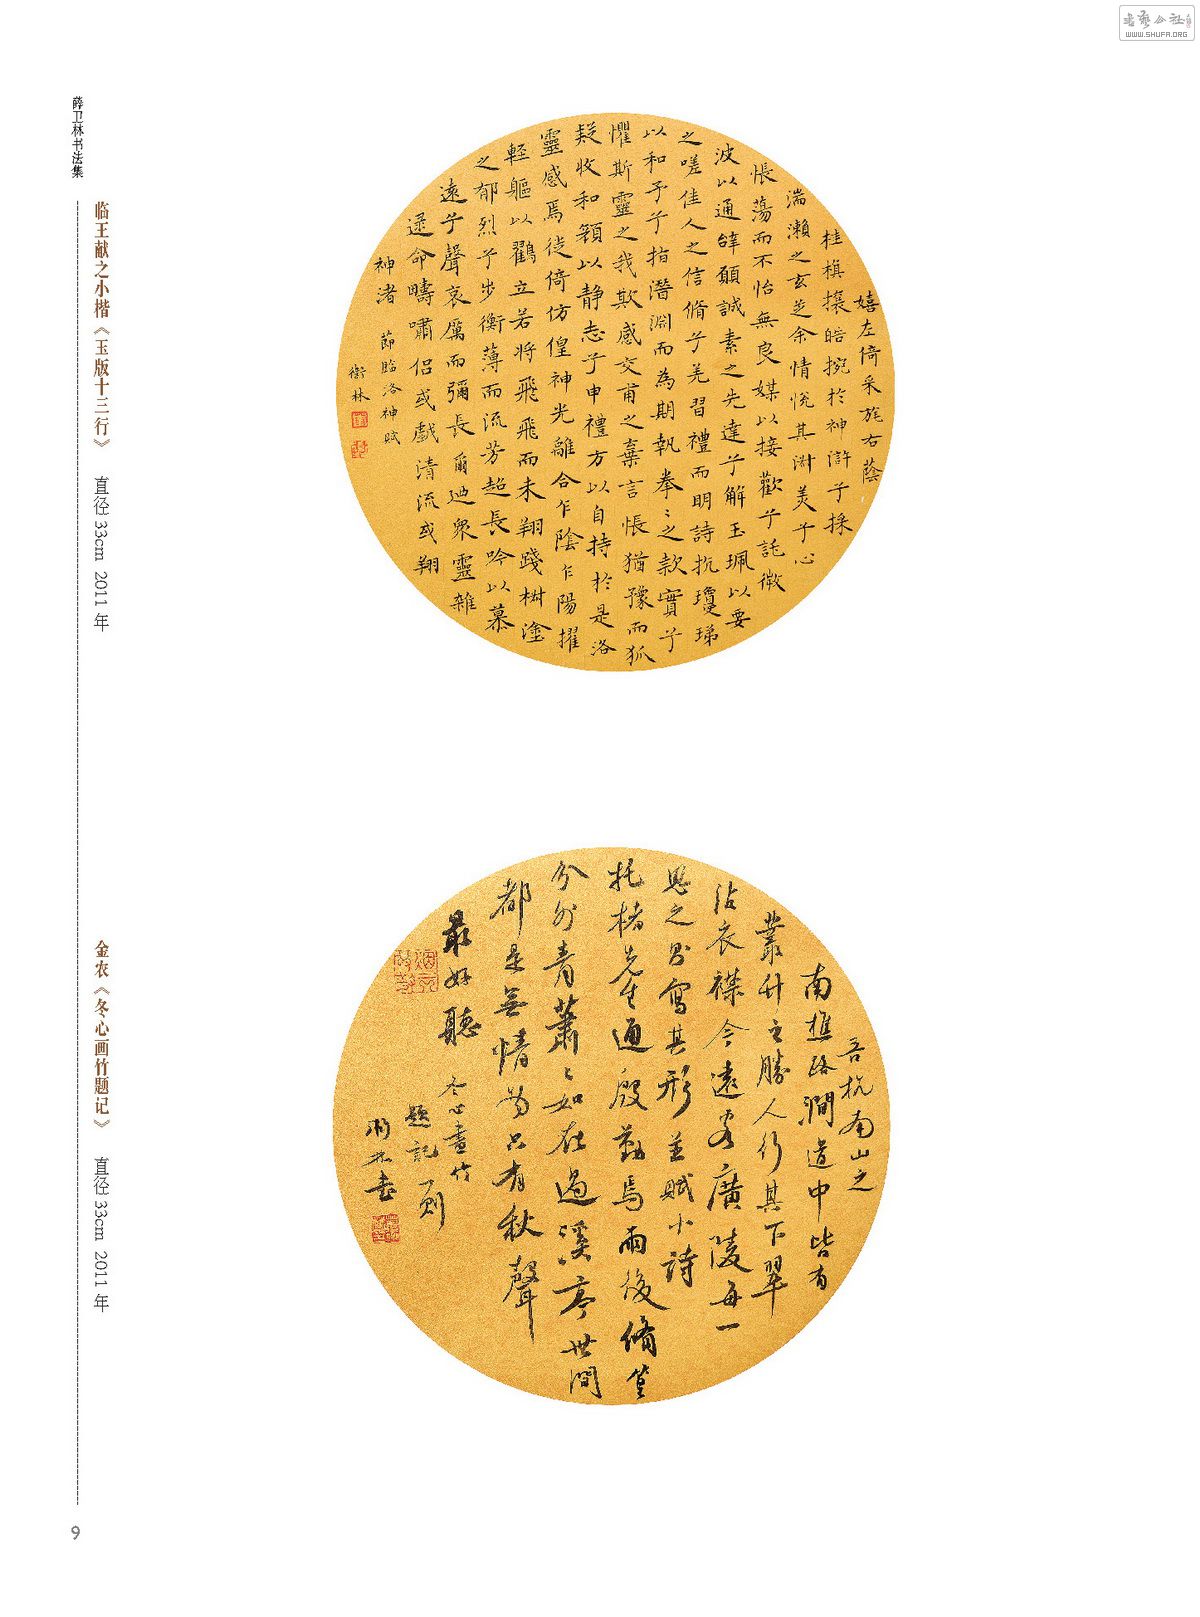 薛卫林书法集
临王献之小楷《玉版十三行》 直径 33cm 2011 年
嬉左倚采旄右蔭
桂旗攘皓捥於神滸兮採
湍瀨之玄芝余情悅其淑美兮心
悵蕩而不怡無良媒以接歡兮託微
波以通辭願誠素之先達兮解玉珮以要
之嗟佳人之信脩兮羌習禮而明詩抗瓊珶
以和予兮指潛淵而為期執拳〻之款實兮
懼斯靈之我欺感交甫之棄言悵猶豫而狐
疑收和顏以静志兮申禮方以自持於是洛
靈感焉徙倚仿偟神光離合乍陰乍陽擢
輕軀以鶴立若将飛飛而未翔踐椒塗
之郁烈兮步衡薄而流芳超長吟以慕
遠兮聲哀厲而彌長爾迺衆靈雜
遝命疇嘯侣或戲清流或翔
神渚 節臨洛神賦
衛林
金农《冬心画竹题记》 直径 33cm 2011 年
吾杭南山之
南樵路澗道中皆有
叢竹之勝人行其下翠
沾衣襟今遠客廣陵每一
思之則寫其形並賦小詩
托楮先生通殷勤焉雨後脩篁
分外青蕭〻如在過溪亭世間
都是無情物只有秋聲
最好聽 冬心畫竹
題記一則
衛林書
9
WWW.SHUFA.ORG